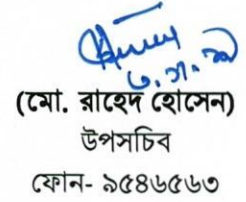 (মো. রাহেদ হোসেন)
উপসচিব
ফোন- ৯৫৪৬৫৬৩